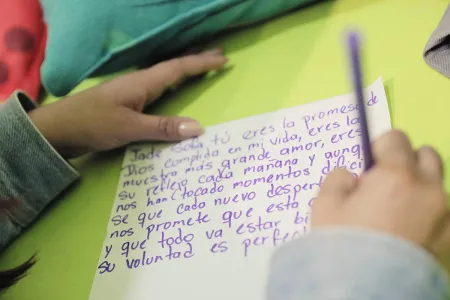 Jade Isola, tú eres la promesa de
Dios cumplida en mi vida, eres la
muestra más grande amor, eres
su reflejo cada mañana y aunq
nos han tocado momentos difici
se que cada nuevo despert
nos promete que esta
y que todo va estar bi
su voluntad es perfec